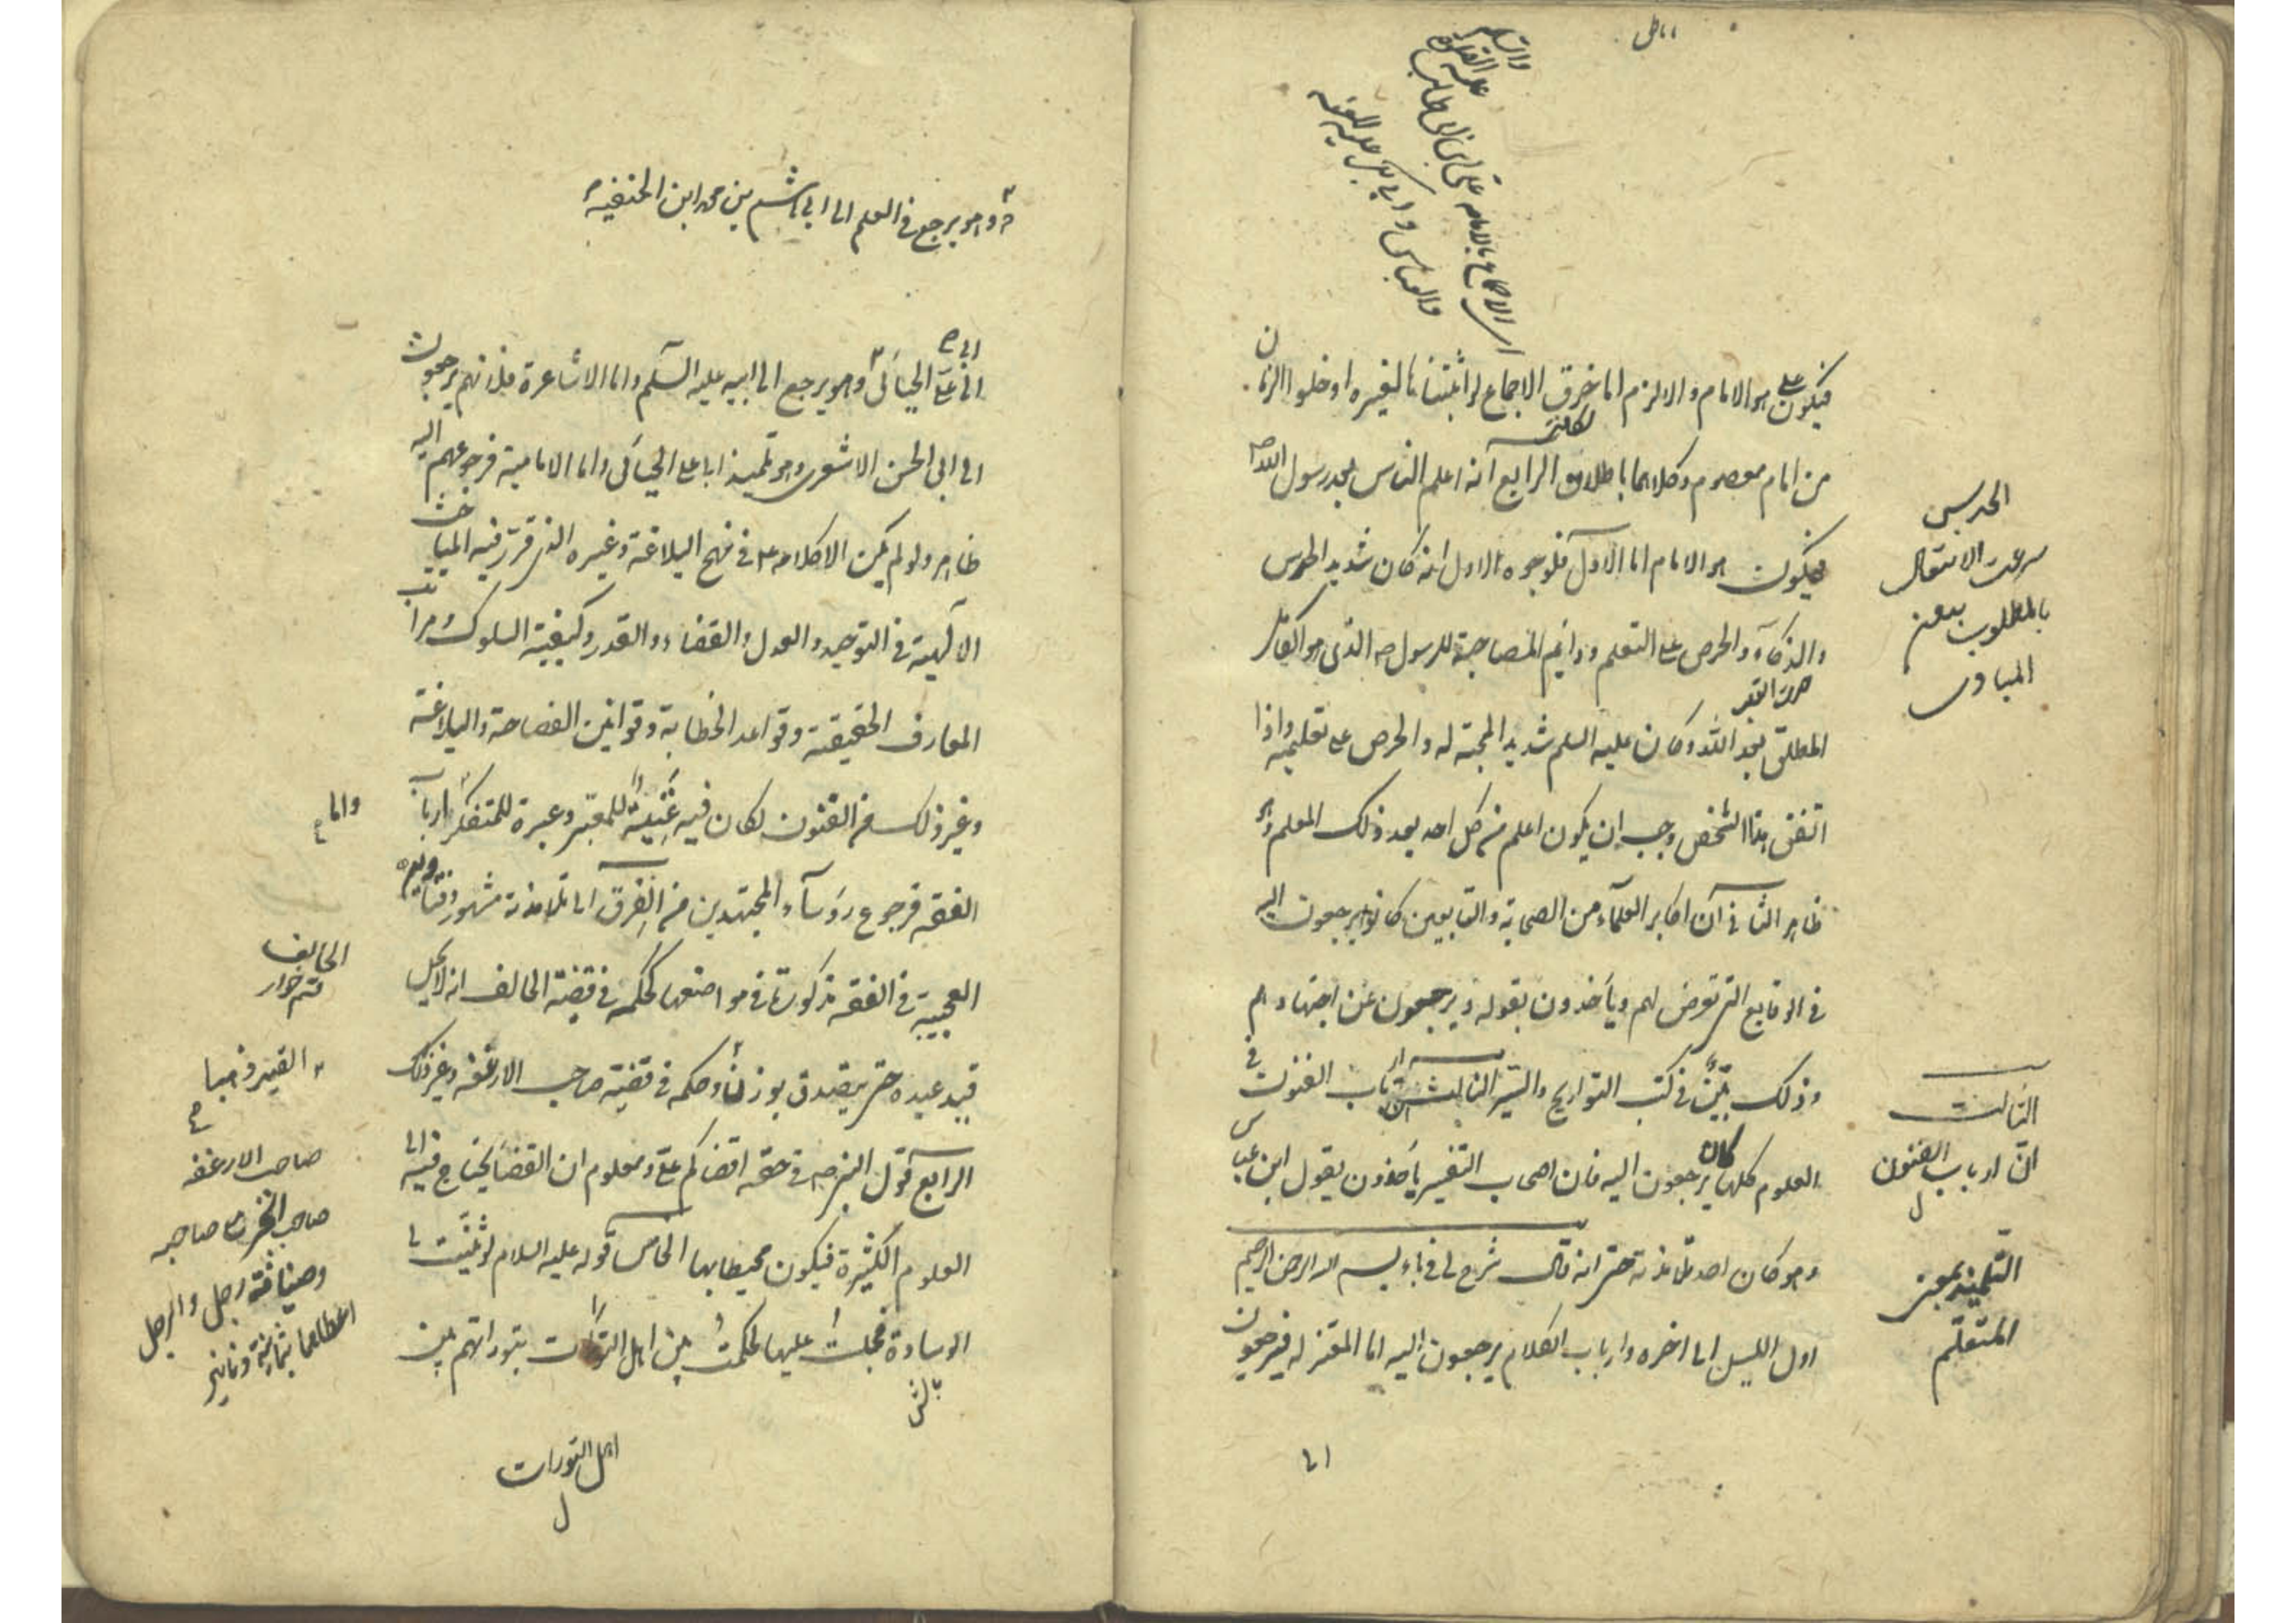 باطل
والسلم
عليه الصلوة
اى الاجماع بالامامة على ابن ابى طالب
والعباس و ابى بكر عليه اللعنة
فيكون على هو الامام والا لزم اما خرق الاجماع لو اثبتناها لغيره او خلو الزمان
من امام معصوم وكلاهما باطلان الرابع انه اعلم الناس بعد رسول الله ص
فيكون هو الامام اما الاول فلوجوه الاول انه كان شديد الحدس
والذكاء والحرص على التعلم ودائم المصاحبة للرسول ص الذى هو الكامل
المطلق بعد الله وكان عليه السلم شديد المحبة له والحرص على تعليمه واذا
اتفق هذا الشخص وجب ان يكون اعلم من كل احد بعد ذلك المعلم وهو
ظاهر الثانى ان اكابر العلماء من الصحابة والتابعين كانوا يرجعون اليه
فى الوقايع التى تعرض لهم ويأخذون بقوله ويرجعون عن اجتهادهم
وذلك بيّن فى كتب التواريخ والسير الثالث ان ارباب الفنون فى
العلوم كلها يرجعون اليه فان اصحاب التفسير يأخذون بقول ابن عباس
وهو كان احد تلامذته حتى انه قال شرح لى فى باء بسم الله الرحمن الرحيم
اول الليل الى اخره وارباب الكلام يرجعون اليه اما المعتزله فيرجعون
الى
الحدس
سرعت الانتقال
بالمطلوب بعن
المبادى
الثالث
انّ ارباب الفنون
ل
التلميذ بمعنى
المتعلم
وهو يرجع فى العلم الى ابى هاشم بن محمد ابن الحنفية
الى ابى على الجبائى وهو يرجع الى ابيه عليه السلم واما الاشاعرة فلانهم يرجعون
الى ابى الحسن الاشعرى وهو تلميذ ابا على الجبائى واما الامامية فرجوعهم اليه
ظاهر ولو لم يكن الا كلامه ع فى نهج البلاغة وغيره الذى قرر فيه المباحث
الالهية فى التوحيد والعدل والقضاء والقدر وكيفية السلوك ومراتب
المعارف الحقيقية وقواعد الخطابة وقوانين الفصاحة والبلاغة
وغير ذلك من الفنون لكان فيه غنية للمعتبر وعبرة للمتفكر ارباب
الفقه فرجوع رؤساء المجتهدين من الفرق الى تلامذته مشهور وفتاويه
العجيبة فى الفقه مذكورة فى مواضعها كحكمه فى قضية الحالف انه لا يحل
قيد عبده حتى يتصدق بوزنه وحكمه فى قضية صاحب الارغفه وغير ذلك
الرابع قول النبى ص فى حقه اقضاكم على ومعلوم ان القضا يحتاج فيه الى
العلوم الكثيرة فيكون محيطا بها الخامس قوله عليه السلام لو ثنيت لى
الوسادة فجلست عليها لحكمت بين اهل التورات بتوراتهم بين
واما
الحالف
قسم خوار
صاحب الارغفه
وضيافة رجل والرجل
اعطاهما ثمانية دنانير
اهل التورات
ل